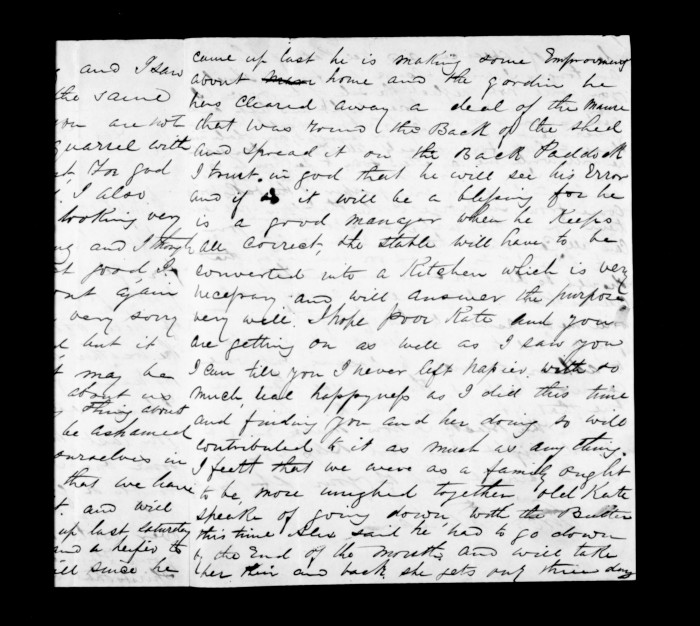 and I saw
the same
you are not
quarrel with
for god
I also
looking very
and I though
good, I
again
very sorry
but it
may be
about us
thing about
be ashamed
ourselves in
that we have
and will
up last saturday
and a heifer to
since he
came up last he is making some Emprovments
about home and the gordin he
hers cleared away a deal of the Manure
that was round the Back of the shed
and spread it on the Back Paddock
I trust in god that he will see his Error
and if it will be a blessing for he
is a good manager when he Keeps
all correct, the stable will have to be
converted into a Kitchen which is very
necessary and will answer the purpose
very well. I hope poor Kate and you
are getting on as well as I saw you
I can till you I never left napier with so
much real happyness as I did this time
and finding you and her doing so will
contributed to it as much as any thing.
I feelt that we were as a family ought
to be, more together, old Kate
speake of going down with the
this time Alex said he had to go down
the End of the month and will take
her thir and back she gets only three days